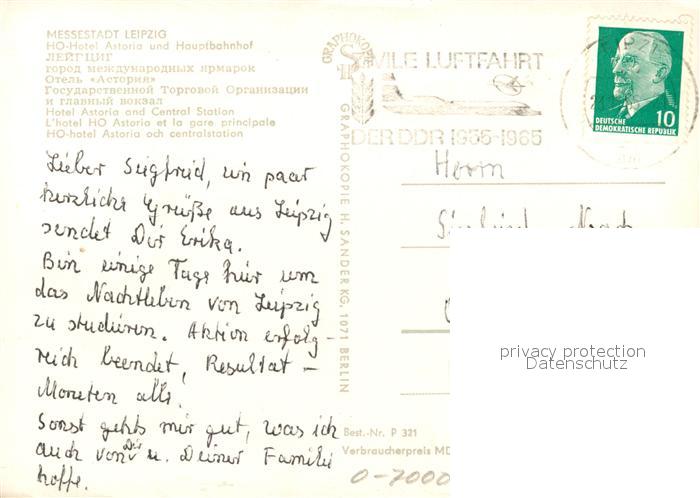 MESSESTADT LEIPZIG
HO-Hotel Astoria und Hauptbahnhof
ЛЕЙПЦИГ
город международных ярмарок
Отель «Астория»
Государственной Торговой Организации
и главный вокзал
Hotel Astoria and Central Station
L'hotel HO Astoria et la gare principale
HO-hotel Astoria och centralstation
Lieber Siegfried, ein paar
herzliche Grüße aus Leipzig
sendet Dir Erika.
Bin einige Tage hier um
das Nachtleben von Leipzig
zu studieren. Aktion erfolg-
reich beendet, Resultat –
Moneten alle.
Sonst gehts mir gut, was ich
auch von Dir u. Deiner Familie
hoffe.
GRAPHOKOPIE
GRAPHOKOPIE H. SANDER KG, 1071 BERLIN
ZIVILE LUFTFAHRT
DER DDR 1955-1965
10
DEUTSCHE
DEMOKRATISCHE REPUBLIK
Herrn
privacy protection
Datenschutz
Best.-Nr. P 321
Verbraucherpreis MD
0-7000